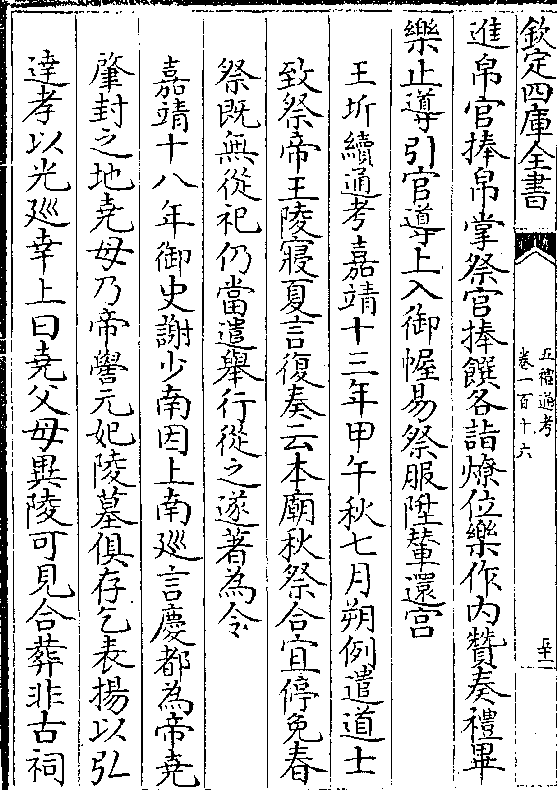 欽定四庫全書
五禮通考
卷一百十六
進帛官捧帛掌祭官捧饌各詣燎位樂作内贊奏禮畢
樂止導引官導上入御幄易祭服陞輦還宫
王圻續通考嘉靖十三年甲午秋七月朔例遣道士
致祭帝王陵寢夏言復奏云本廟秋祭合宜停免春
祭既無從祀仍當遣舉行從之遂著為令
嘉靖十八年御史謝少南因上南廵言慶都為帝堯
肇封之地堯母乃帝嚳元妃陵墓俱存乞表揚以弘
達孝以光廵幸上曰堯父母異陵可見合葬非古祠